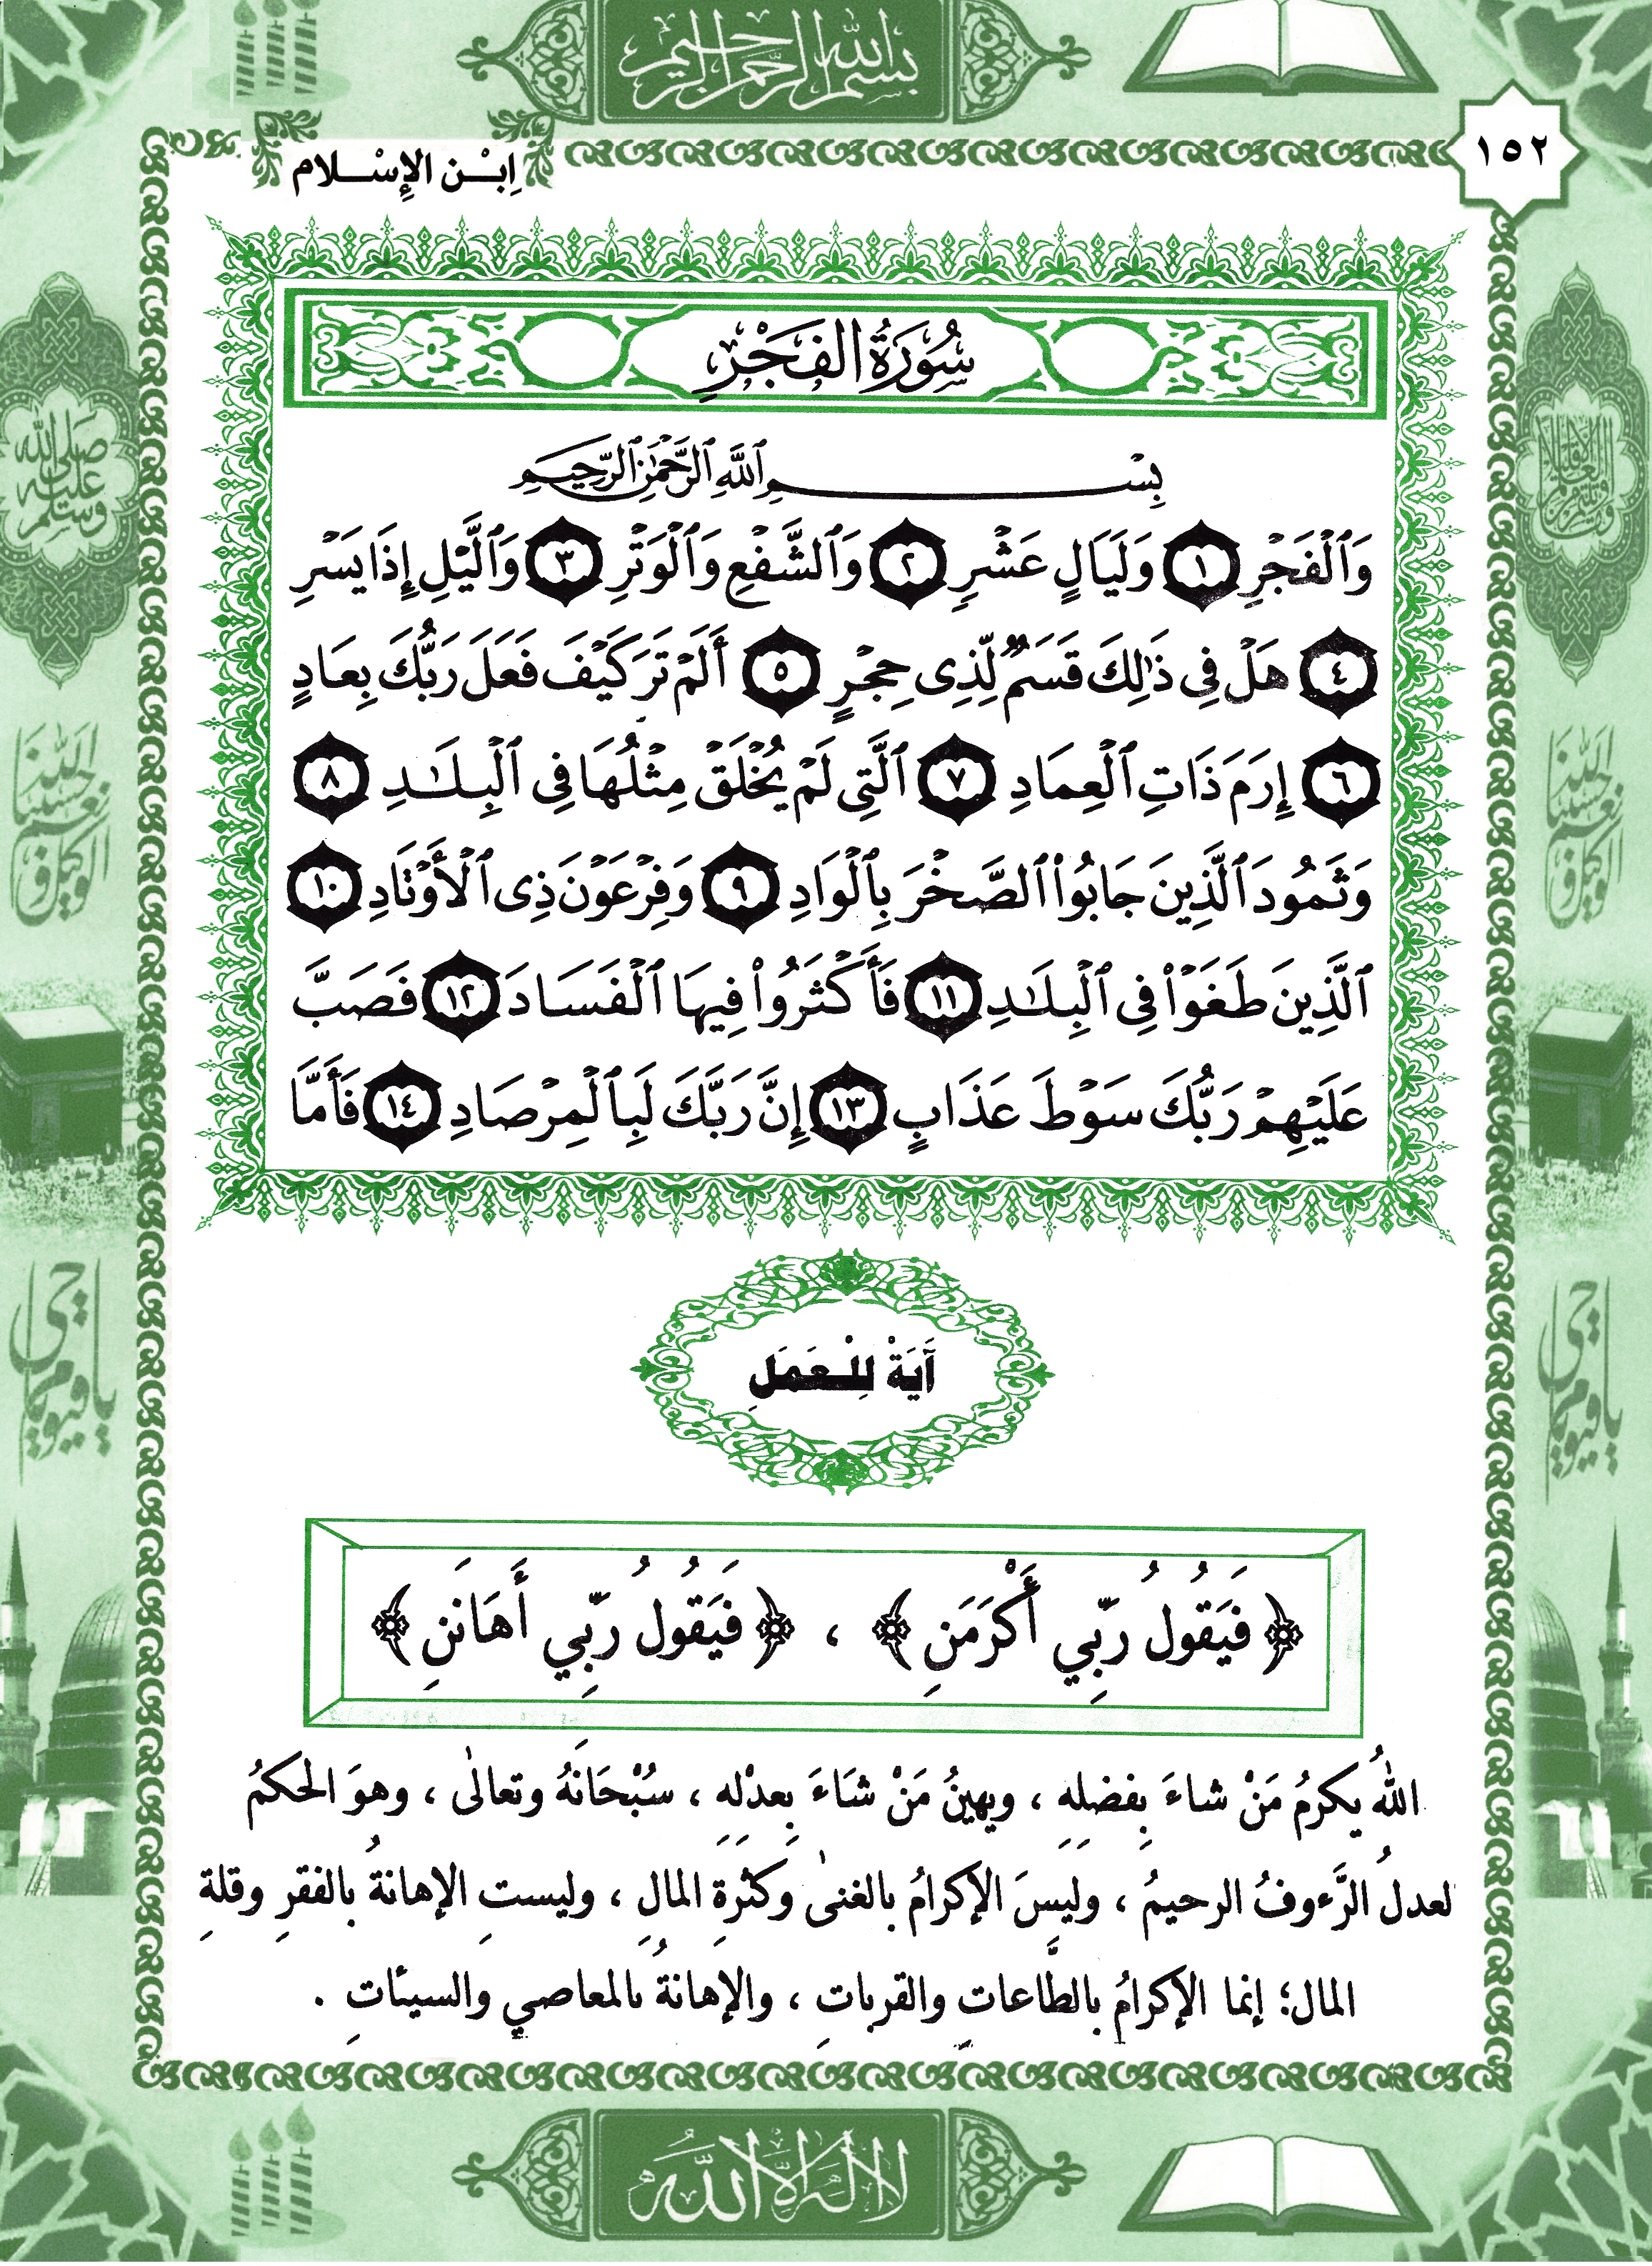 بسم الله الرحمن الرحيم
١٥٢
اِبْـــن الإِسْـــلام
سُورَةُ الفَجْرِ
بِسْمِ ٱللَّهِ ٱلرَّحْمَٰنِ ٱلرَّحِيمِ
وَٱلْفَجْرِ ١ وَلَيَالٍ عَشْرٍ ٢ وَٱلشَّفْعِ وَٱلْوَتْرِ ٣ وَٱلَّيْلِ إِذَا يَسْرِ
٤ هَلْ فِى ذَٰلِكَ قَسَمٌ لِّذِى حِجْرٍ ٥ أَلَمْ تَرَ كَيْفَ فَعَلَ رَبُّكَ بِعَادٍ
٦ إِرَمَ ذَاتِ ٱلْعِمَادِ ٧ ٱلَّتِى لَمْ يُخْلَقْ مِثْلُهَا فِى ٱلْبِلَٰدِ ٨
وَثَمُودَ ٱلَّذِينَ جَابُوا۟ ٱلصَّخْرَ بِٱلْوَادِ ٩ وَفِرْعَوْنَ ذِى ٱلْأَوْتَادِ ١٠
ٱلَّذِينَ طَغَوْا۟ فِى ٱلْبِلَٰدِ ١١ فَأَكْثَرُوا۟ فِيهَا ٱلْفَسَادَ ١٢ فَصَبَّ
عَلَيْهِمْ رَبُّكَ سَوْطَ عَذَابٍ ١٣ إِنَّ رَبَّكَ لَبِٱلْمِرْصَادِ ١٤ فَأَمَّا
آيَةْ لِلْـعَمَلِ
﴿فَيَقُولُ رَبِّي أَكْرَمَنِ﴾ ، ﴿فَيَقُولُ رَبِّي أَهَانَنِ﴾
اللهُ يكرمُ مَنْ شاءَ بِفضلِهِ ، ويهينُ مَنْ شَاءَ بِعدْلِهِ ، سُبْحَانَهُ وتعالىٰ ، وهوَ الحكمُ
لعدلُ الرَّءوفُ الرحيمُ ، وليسَ الإكرامُ بالغنىٰ وكثرةِ المالِ ، وليستِ الإهانةُ بالفقرِ وقلةِ
المال؛ إنما الإكرامُ بالطَّاعاتِ والقرباتِ ، والإهانةُ بالمعاصي والسيئاتِ .
صلى الله عليه وسلم
حسبنا الله ونعم الوكيل
حسبنا الله ونعم الوكيل
يا حي يا قيوم
يا حي يا قيوم
لا اله الا الله